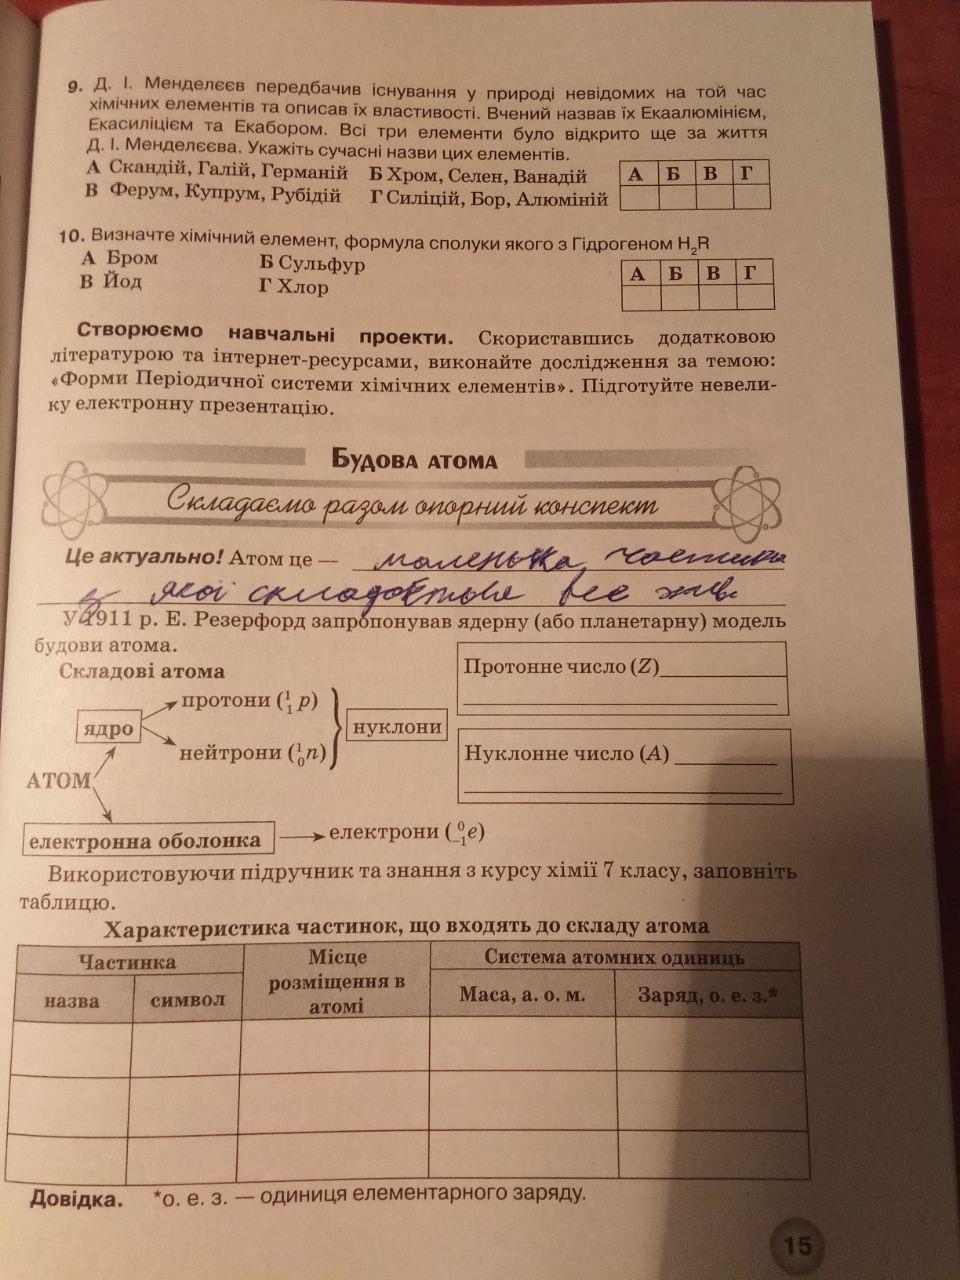 9. Д. І. Менделєєв передбачив існування у природі невідомих на той час
хімічних елементів та описав їх властивості. Вчений назвав їх Екаалюмінієм,
Екасиліцієм та Екабором. Всі три елементи було відкрито ще за життя
Д. І. Менделєєва. Укажіть сучасні назви цих елементів.
А Скандій, Галій, Германій Б Хром, Селен, Ванадій
В Ферум, Купрум, Рубідій Г Силіцій, Бор, Алюміній
А Б В Г
10. Визначте хімічний елемент, формула сполуки якого з Гідрогеном H₂R
А Бром Б Сульфур
В Йод Г Хлор
А Б В Г
Створюємо навчальні проекти. Скориставшись додатковою
літературою та інтернет-ресурсами, виконайте дослідження за темою:
«Форми Періодичної системи хімічних елементів». Підготуйте невели-
ку електронну презентацію.
Будова атома
Складаємо разом опорний конспект
Це актуально! Атом це — маленька частинка
з якої складається все живе
У 1911 р. Е. Резерфорд запропонував ядерну (або планетарну) модель
будови атома.
Складові атома
Протонне число (Z)
протони (¹₁p)
ядро
нуклони
нейтрони (¹₀n)
Нуклонне число (A)
АТОМ
електронна оболонка
електрони (⁰₋₁e)
Використовуючи підручник та знання з курсу хімії 7 класу, заповніть
таблицю.
Характеристика частинок, що входять до складу атома
Частинка
Місце
розміщення в
атомі
Система атомних одиниць
назва символ Маса, а. о. м. Заряд, о. е. з.*
Довідка. *о. е. з. — одиниця елементарного заряду.
15